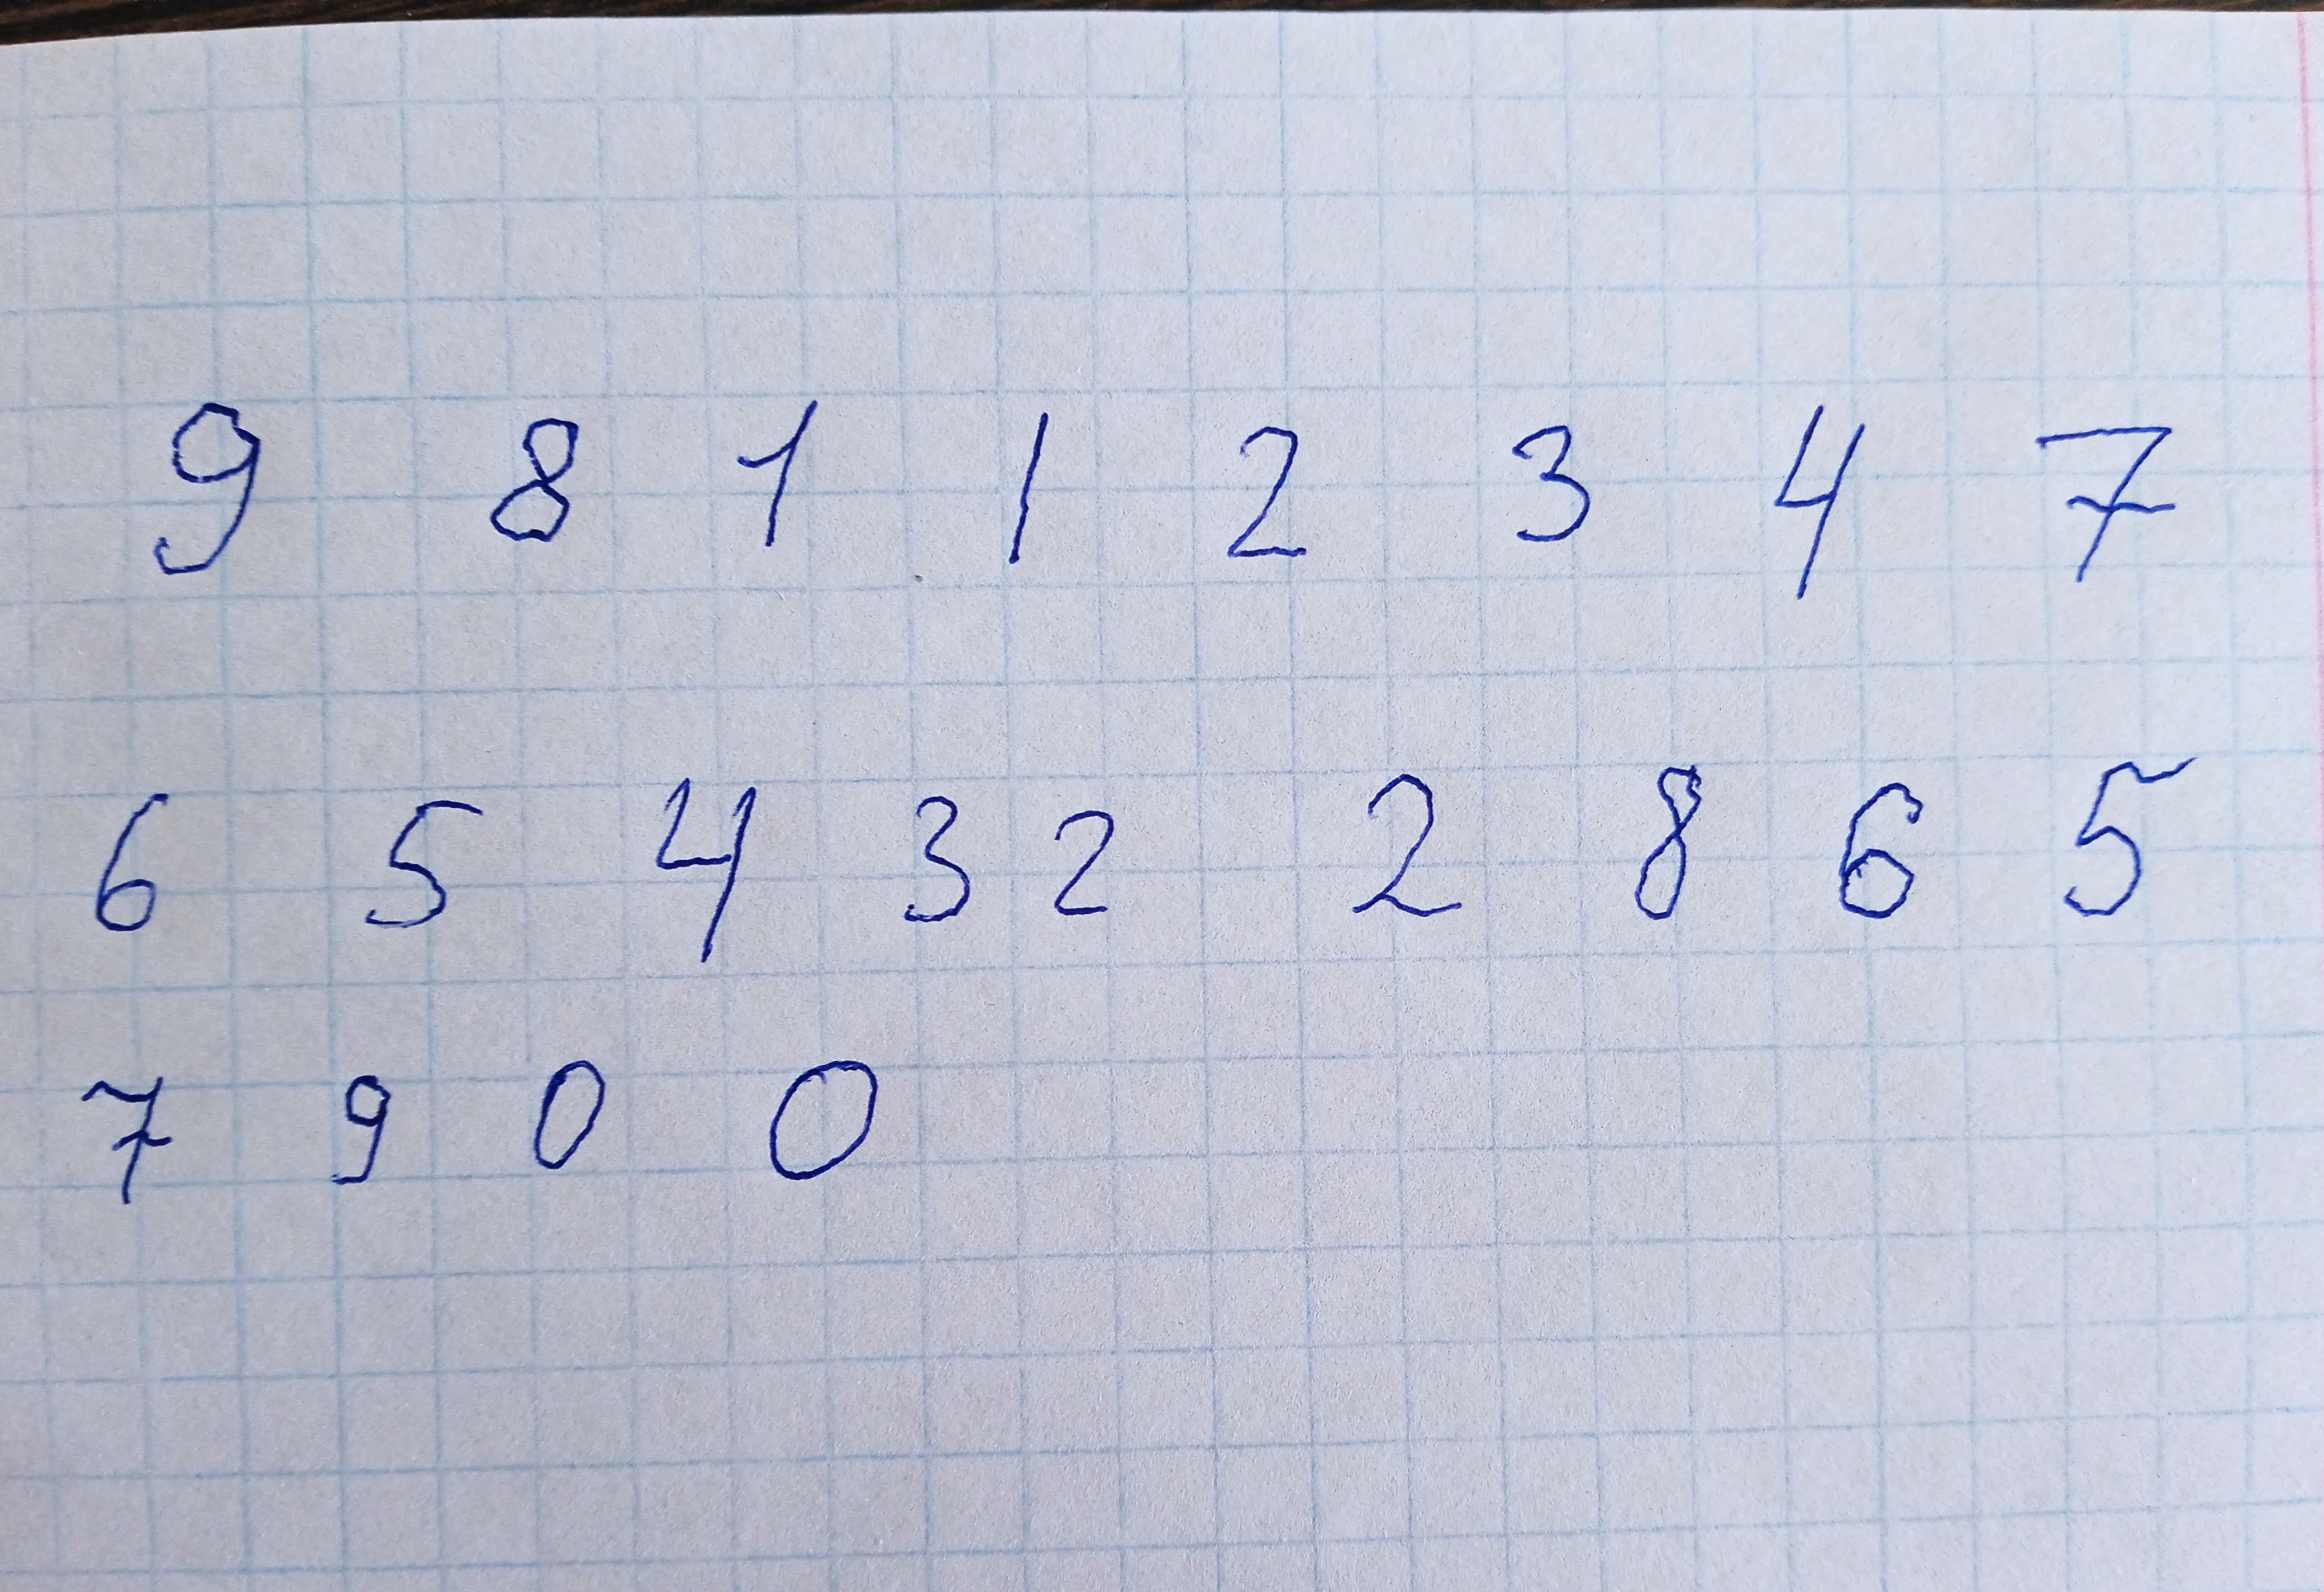 9 8 1 1 2 3 4 7
6 5 4 3 2 2 8 6 5
7 9 0 0